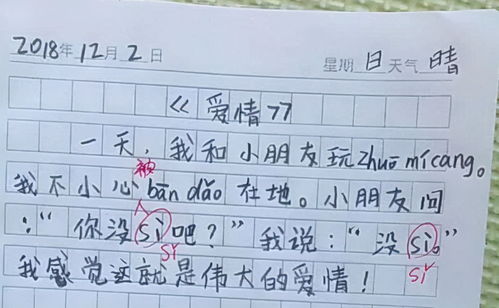 2018年12月2日 星期日天气晴
《爱情》
一天，我和小朋友玩zhuō mícang。
被
我不小心bān dǎo在地。小朋友问
："你没sì吧？"我说："没sì。"
sǐ sǐ
我感觉这就是伟大的爱情！